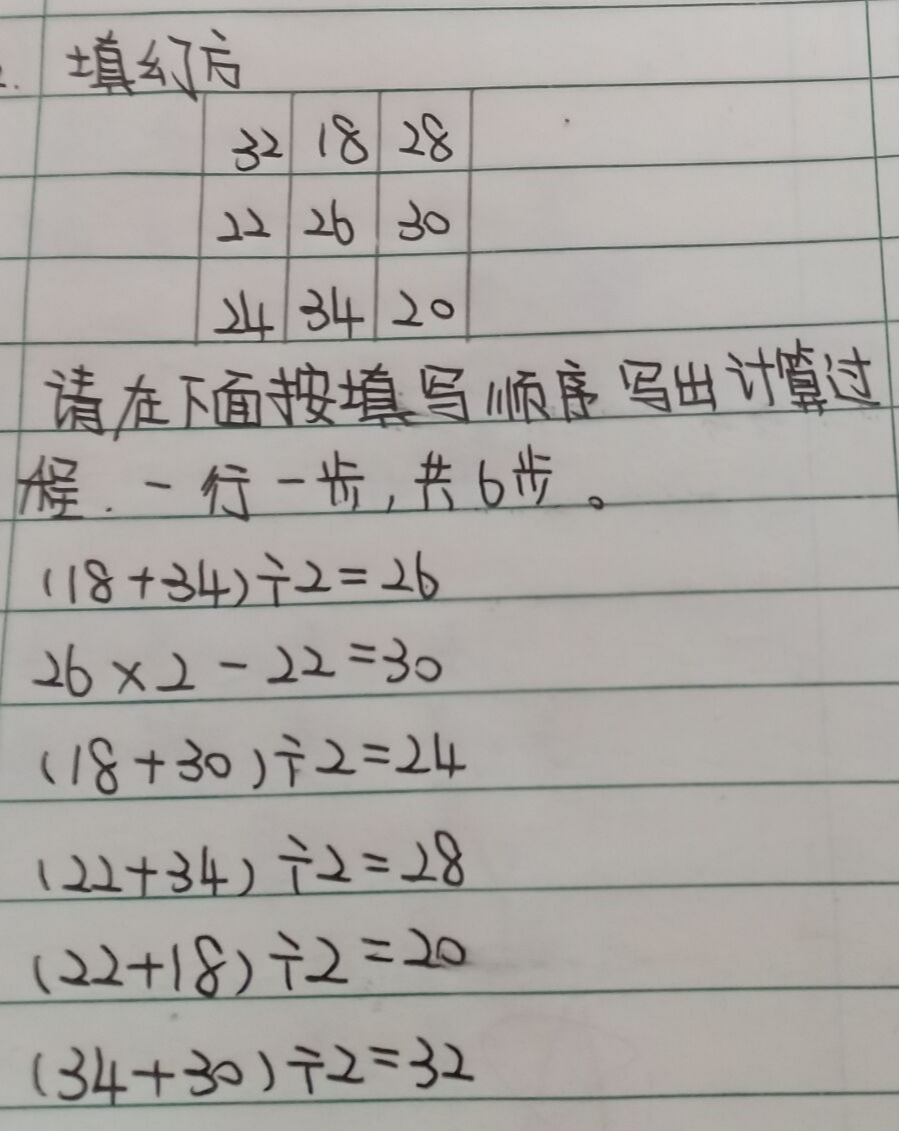 2. 填幻方
32 18 28
22 26 30
24 34 20
请在下面按填写顺序写出计算过
程.一行一步,共6步。
(18+34)÷2=26
26×2-22=30
(18+30)÷2=24
(22+34)÷2=28
(22+18)÷2=20
(34+30)÷2=32